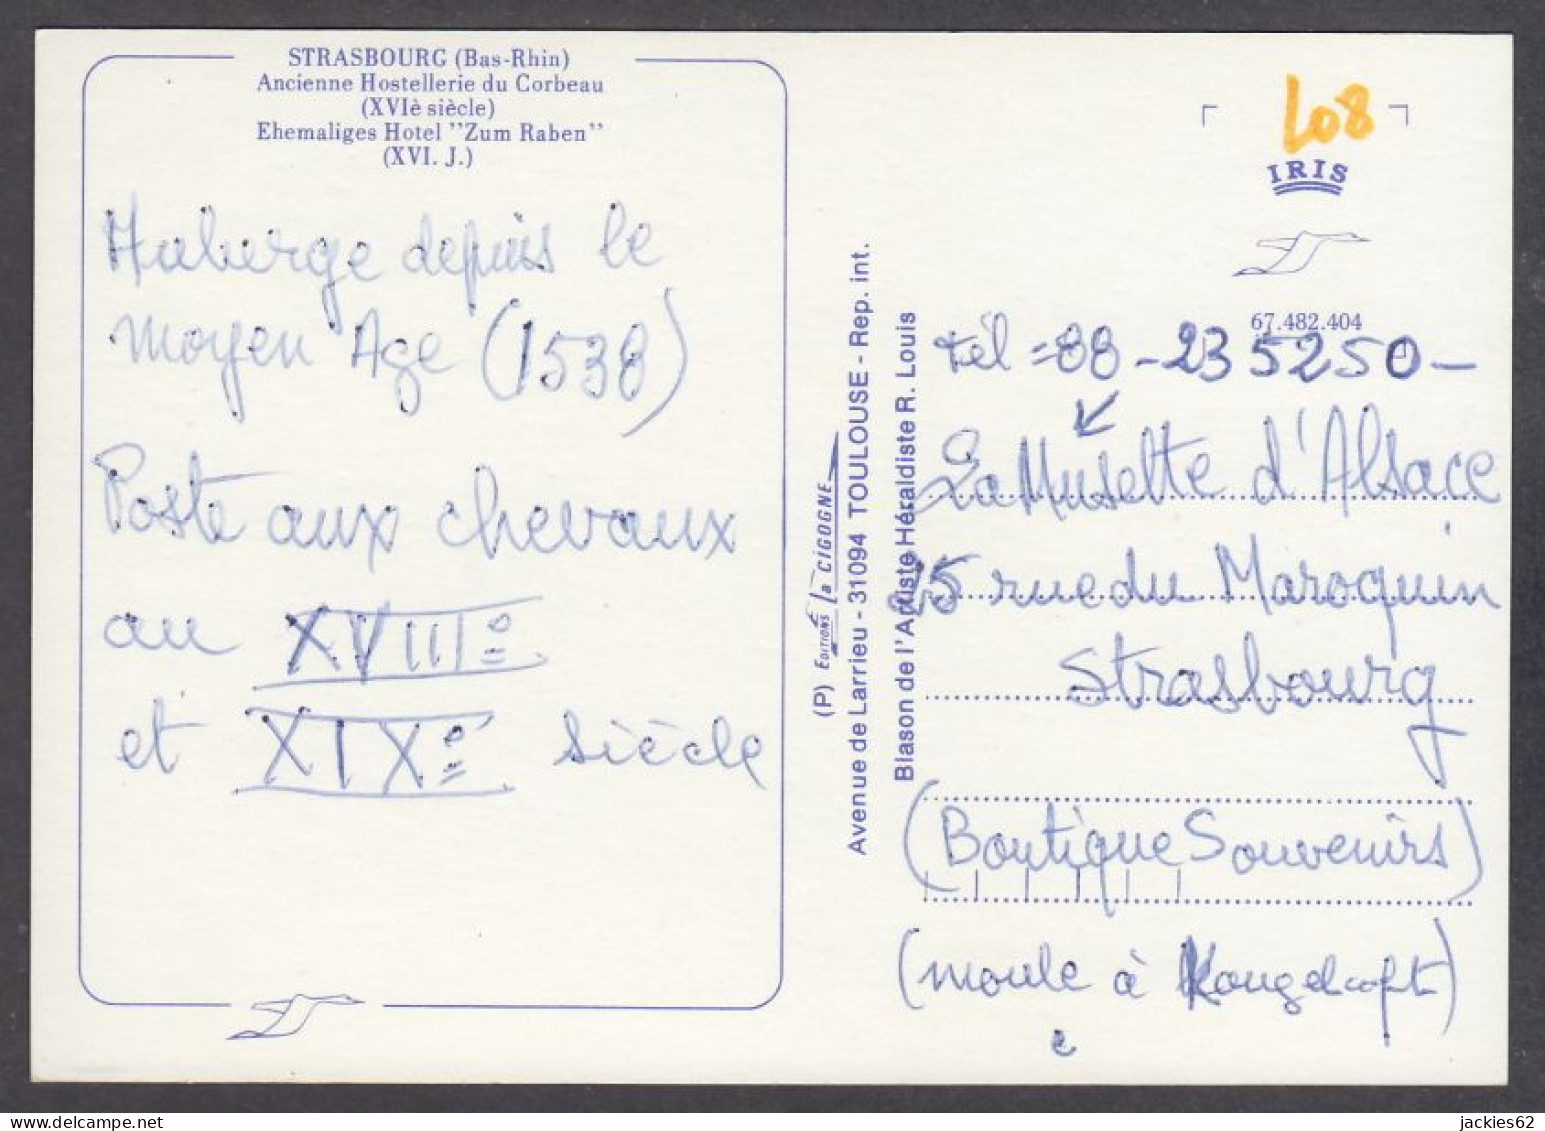 STRASBOURG (Bas-Rhin)
Ancienne Hostellerie du Corbeau
(XVIè siècle)
Ehemaliges Hotel "Zum Raben"
(XVI. J.)
Auberge depuis le
moyen Age (1538)
Poste aux chevaux
au XVIIIe
et XIXe siècle
(P) EDITIONS la CIGOGNE
Avenue de Larrieu - 31094 TOULOUSE - Rep. int.
Blason de l'Artiste Héraldiste R. Louis
108
IRIS
67.482.404
tél = 88 - 23 52 50 -
La Musette d'Alsace
25 rue du Maroquin
Strasbourg
(Boutique Souvenirs)
(moule à Kougelhopft)
e
jackies62